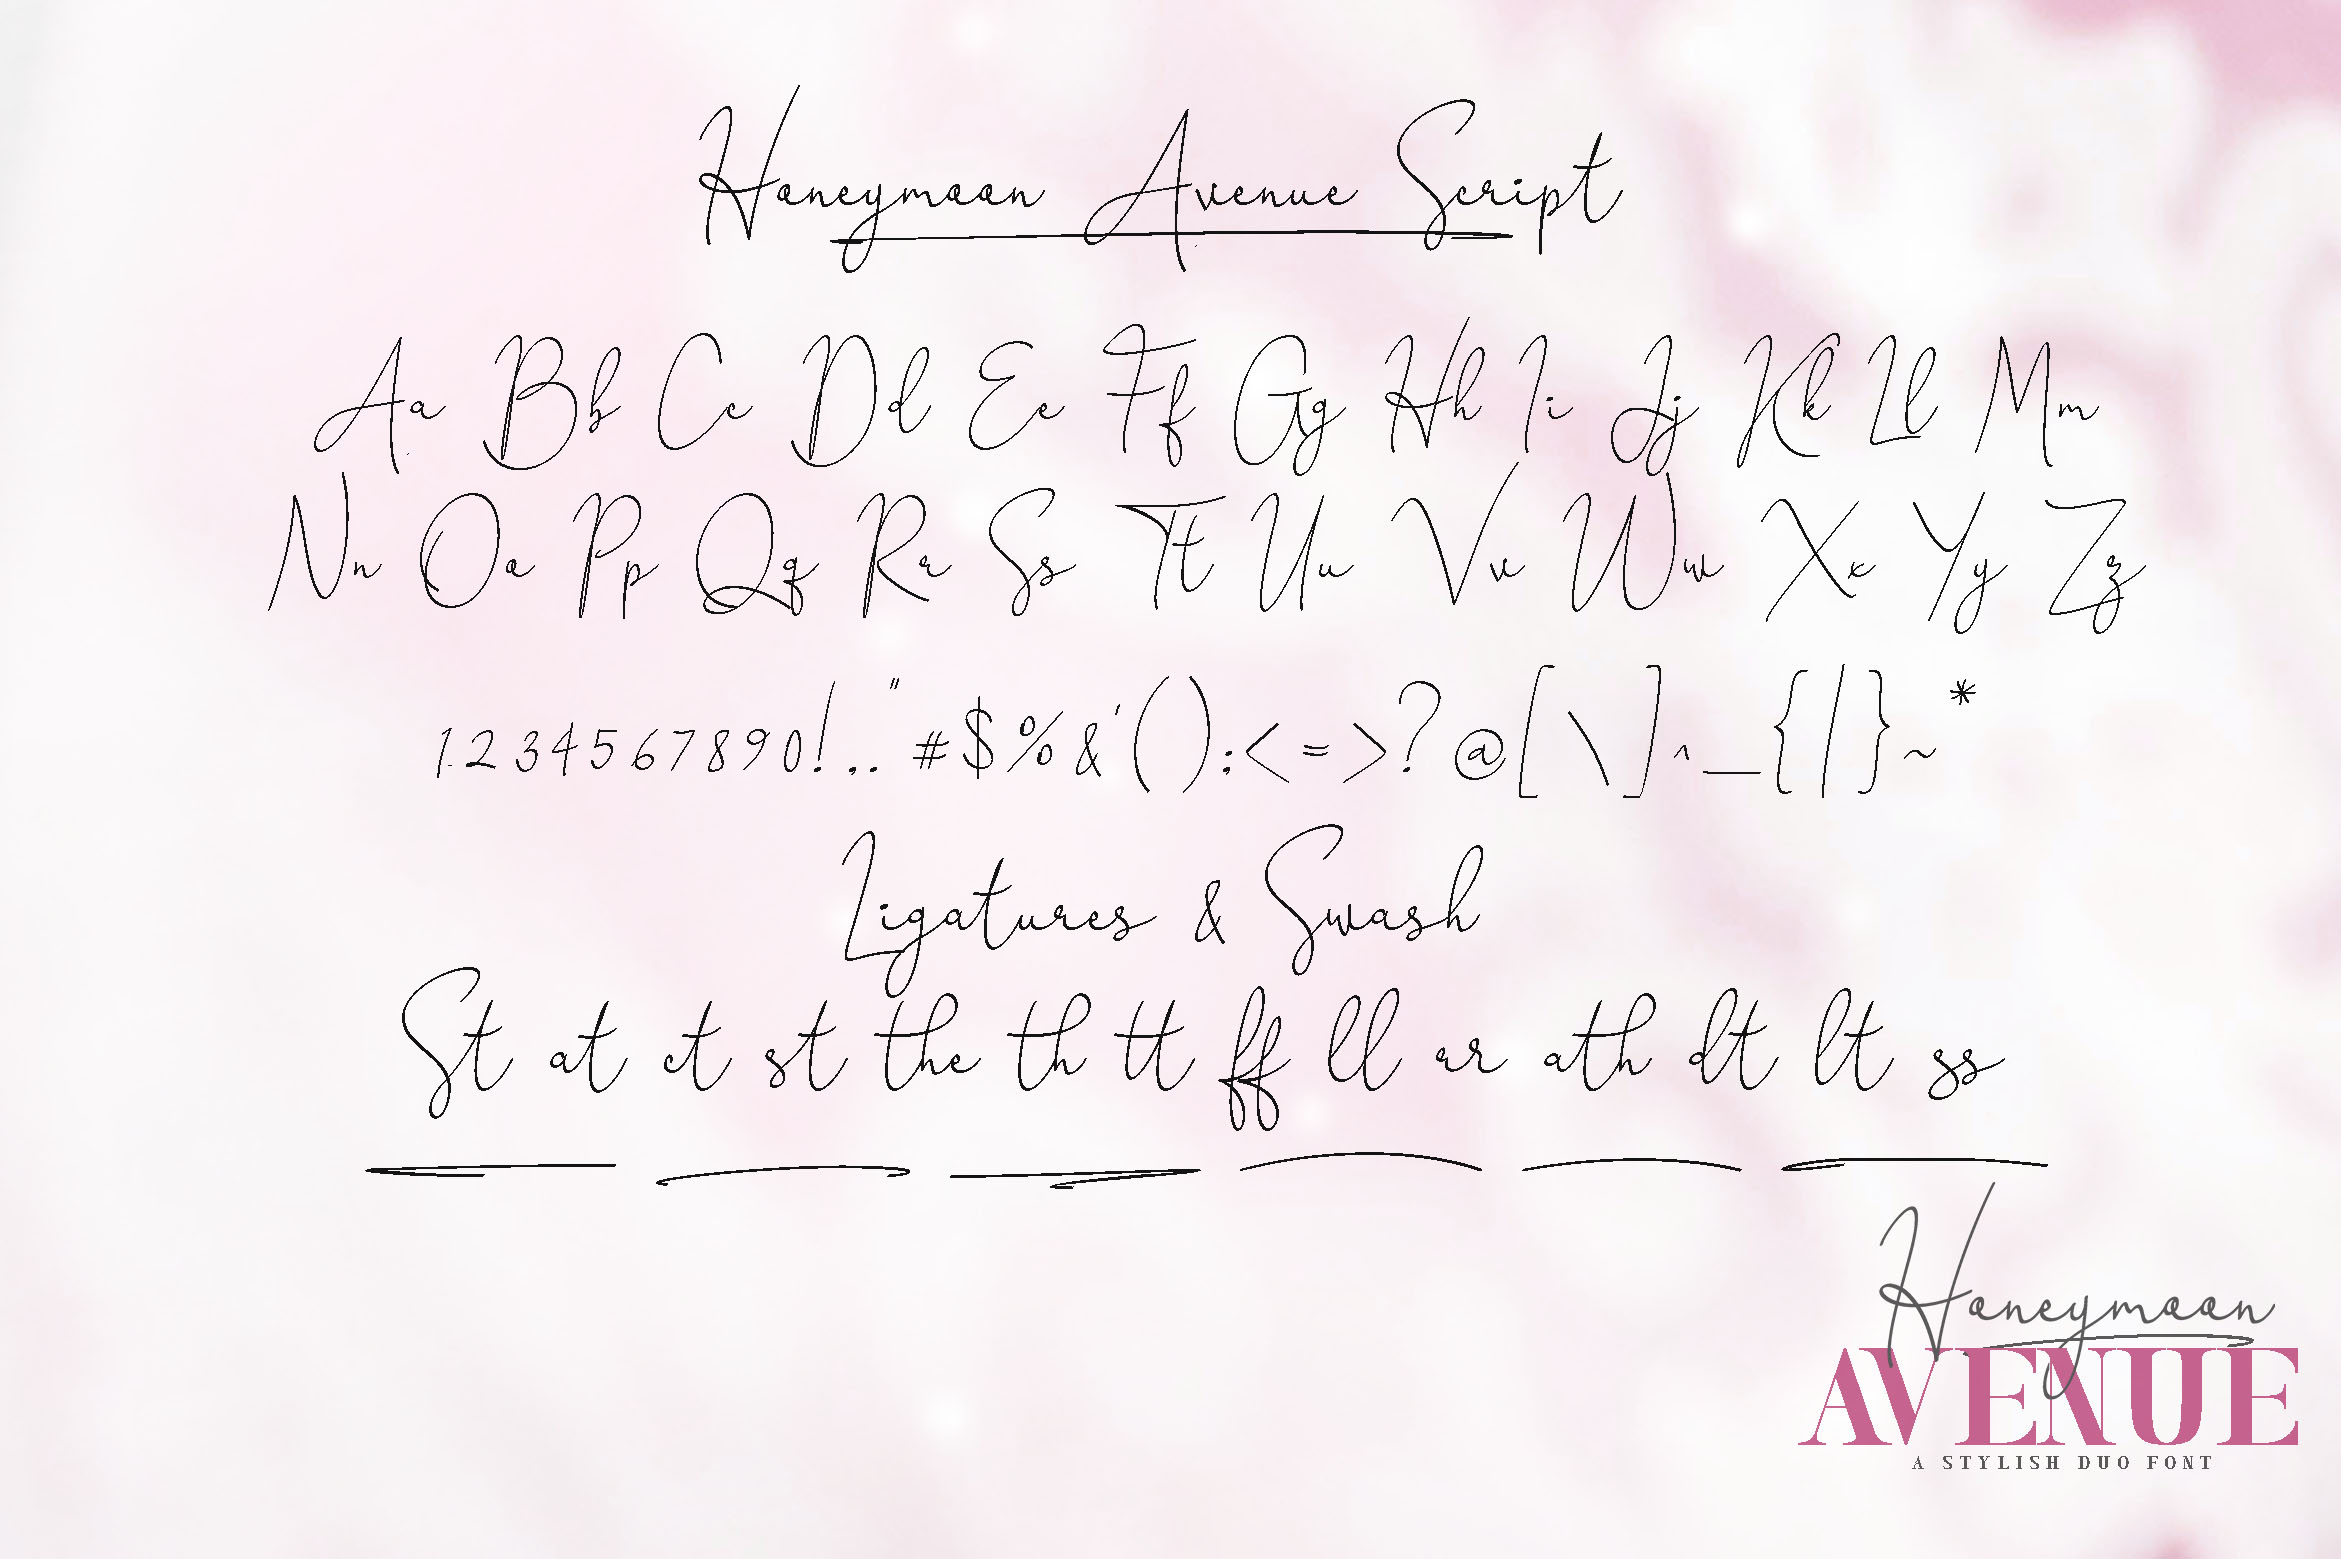 Honeymoon Avenue Script
Aa Bb Cc Dd Ee Ff Gg Hh Ii Jj Kk Ll Mm
Nn Oo Pp Qq Rr Ss Tt Uu Vv Ww Xx Yy Zz
1234567890!..."#$%&'();<=>?@[\]^_{|}~*
Ligatures & Swash
St at ct st the th tt ff ll or ath dt lt ss
Honeymoon
AVENUE
A STYLISH DUO FONT